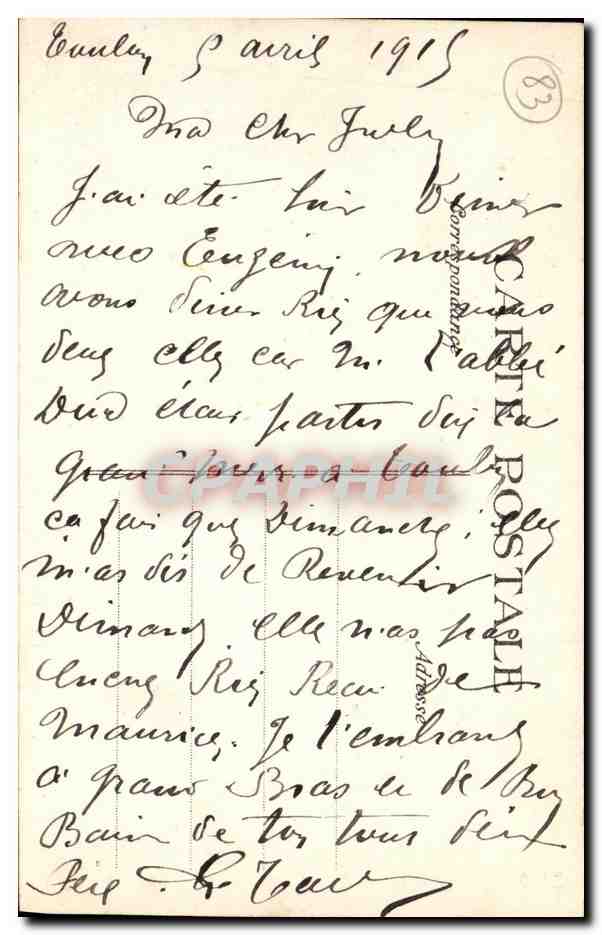 Toulon 5 avril 1915
83
Ma cher July
J'ai été hier Diner
avec Eugény nous
avons diner Rij que nous
deux elle car M. l'abbé
était partis
grand mere a Toulon
ça fai que Dimanche, elle
m'as dis de Revenir
Dimanch elle n'as pas
encore Rij Recu de
Maurice. Je t'embrasse
a grand Bras et de
Baiser de ton tous
CARTE POSTALE
Correspondance
Adresse
CPAPHIL